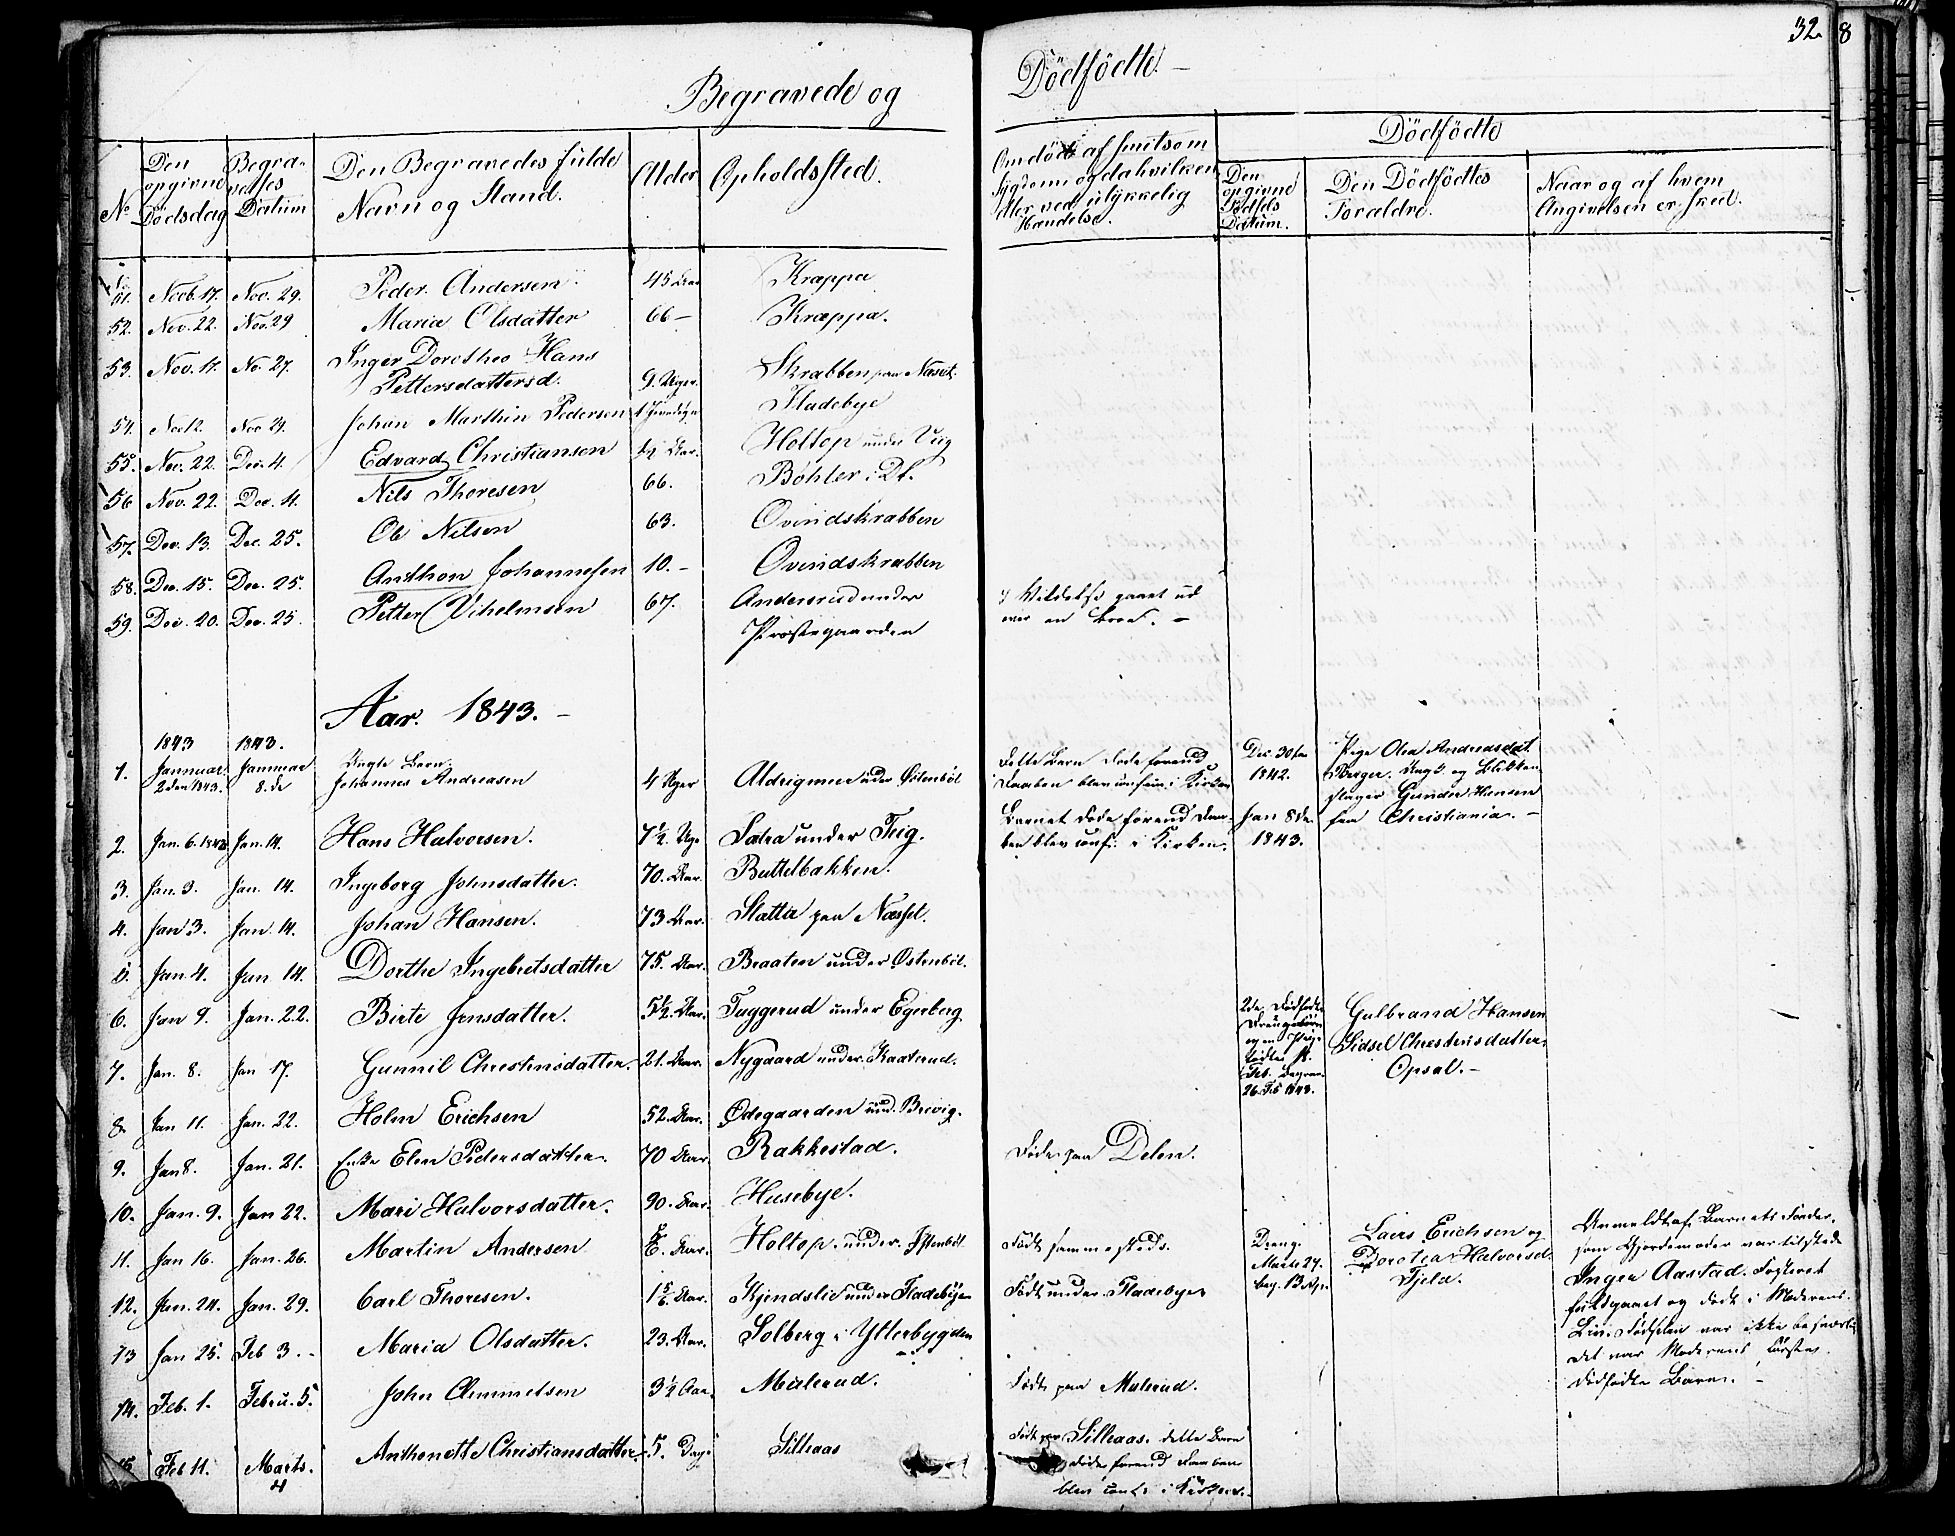 32. 8
Begravede og Dödfödte. –
No
Den opgivne Dødsdag
Begravelses Datum
Den Begravedes fulde Navn og Stand.
Alder
Opholdssted.
Om død af smitsom Sygdom og da hvilken eller ved ulykkelig Hændelse.
Dödfödte
Den opgivne Fødsels Datum.
Den Dödfödtes Forældre.
Naar og af hvem Angivelsen er skeed.
51. Novb. 17. Nov. 29. Peder Andersen 45 Aar Kræppa
52. Nov. 22. Nov. 29 Maria Olsdatter 66 – Kræppa.
53. Nov. 17. No. 27. Inger Dorothea Hans
Pettersdattersd. 9. Uger. Skrabben paa Næset.
54. Nov 12. Nov 29. Johan Marthin Pedersen 1 Fladebye
55. Nov. 22. Dec. 4. Edvard Christiansen Aar. Holtop under
56 Nov. 22. Dec. 4. Nils Thoresen 66. Bøhler i
57. Dec. 13. Dec. 25. Ole Nilsen 63. Ovindskrabben
58. Dec. 15. Dec. 25. Anthon Johannesen 10. – Ovindskrabben
59. Dec. 20. Dec. 25. Petter Vilhelmsen 67. Andersrud under
Præstegaarden
i Vildelse gaaet ud
over en Broe. –
Aar. 1843. –
1843 1843.
1. Januar 2den 1843. Januar 8. de Uægte Barn Johannes Andreasen 4 Uger Aldrigmer under Østenbøl
Dette Barn døde forend
Daaben blev conf. i Kirken
Dec. 30te
1842.
Pige Olea Andreasdat.
Berger. Ung K. og Blikken
slager Gunder Hansen
fra Christiania. –
2. Jan. 6. 1843 Jan. 14. Hans Halvorsen. 7½. Uge Sætra under Teig.
Barnet døde forend Daa-
ben blev conf. i Kirken.
Jan 8de
1843.
3. Jan. 3. Jan. 14. Ingeborg Johnsdatter. 70. Aar. Buttelbakken.
4. Jan 3. Jan. 14. Johan Hansen. 73 Aar. Slatta paa Næsset.
5. Jan. 4. Jan 14. Dorthe Ingebretsdatter 75. Aar. Braaten under Østenbøl.
6. Jan 9. Jan. 22. Birte Jensdatter. 5½. Aar. Taggerud under Egerberg.
2de Dødfødte
Drengebørn
Feb. Begrav.
26. Feb 1843.
Gulbrand Hansen
Sidsel Chrestensdatter
Opsal. –
7. Jan. 8. Jan 17. Gunnil Chrestinsdatter. 21. Aar. Nygaard under Kaaterud.
8. Jan 11. Jan. 22. Holm Erichsen 52. Aar. Ødegaarden und. Brevig.
9. Jan 8. Jan. 21. Enke Elen Pedersdatter. 70 Aar. Rakkestad.
Døde paa Delen.
10. Jan. 9. Jan 22. Mari Halvorsdatter. 90. Aar. Husebye.
11. Jan 16. Jan. 26. Martin Andersen Aar. Holtop. under. Østenbøl
Født sammesteds.
Dreng.
Marts 27.
Lars Erichsen og
Dorotea Halvorsd.
Fjeld.
Anmeldt af Barnets Fader,
som Gjordemoder var tilstede
Inger Aastad. Fosteret
fuldgaaet og dødt i Moderens
Liv. Fødselen var ikke besværlig
det var Moderens første
dødfødte Barn. –
12. Jan. 24. Jan. 29. Carl Thoresen. 1 5/6. Aar. Kjendslie under Fladebyen
Født under Fladebyen
13 Jan 25. Feb 3. – Maria Olsdatter. 23. Aar. Solberg i Ytterbygden
14. Feb. 1. Febru. 5. John Clemmetsen 3½ Aar. Mulerud.
Født paa Mulerud.
15. Feb 11. Marts. 4 Anthonette Christiansdatter 5. Dage Silleaas
Født paa Silleaas. dette Barn
døde forend Daaben
blev conf. i Kirken. –